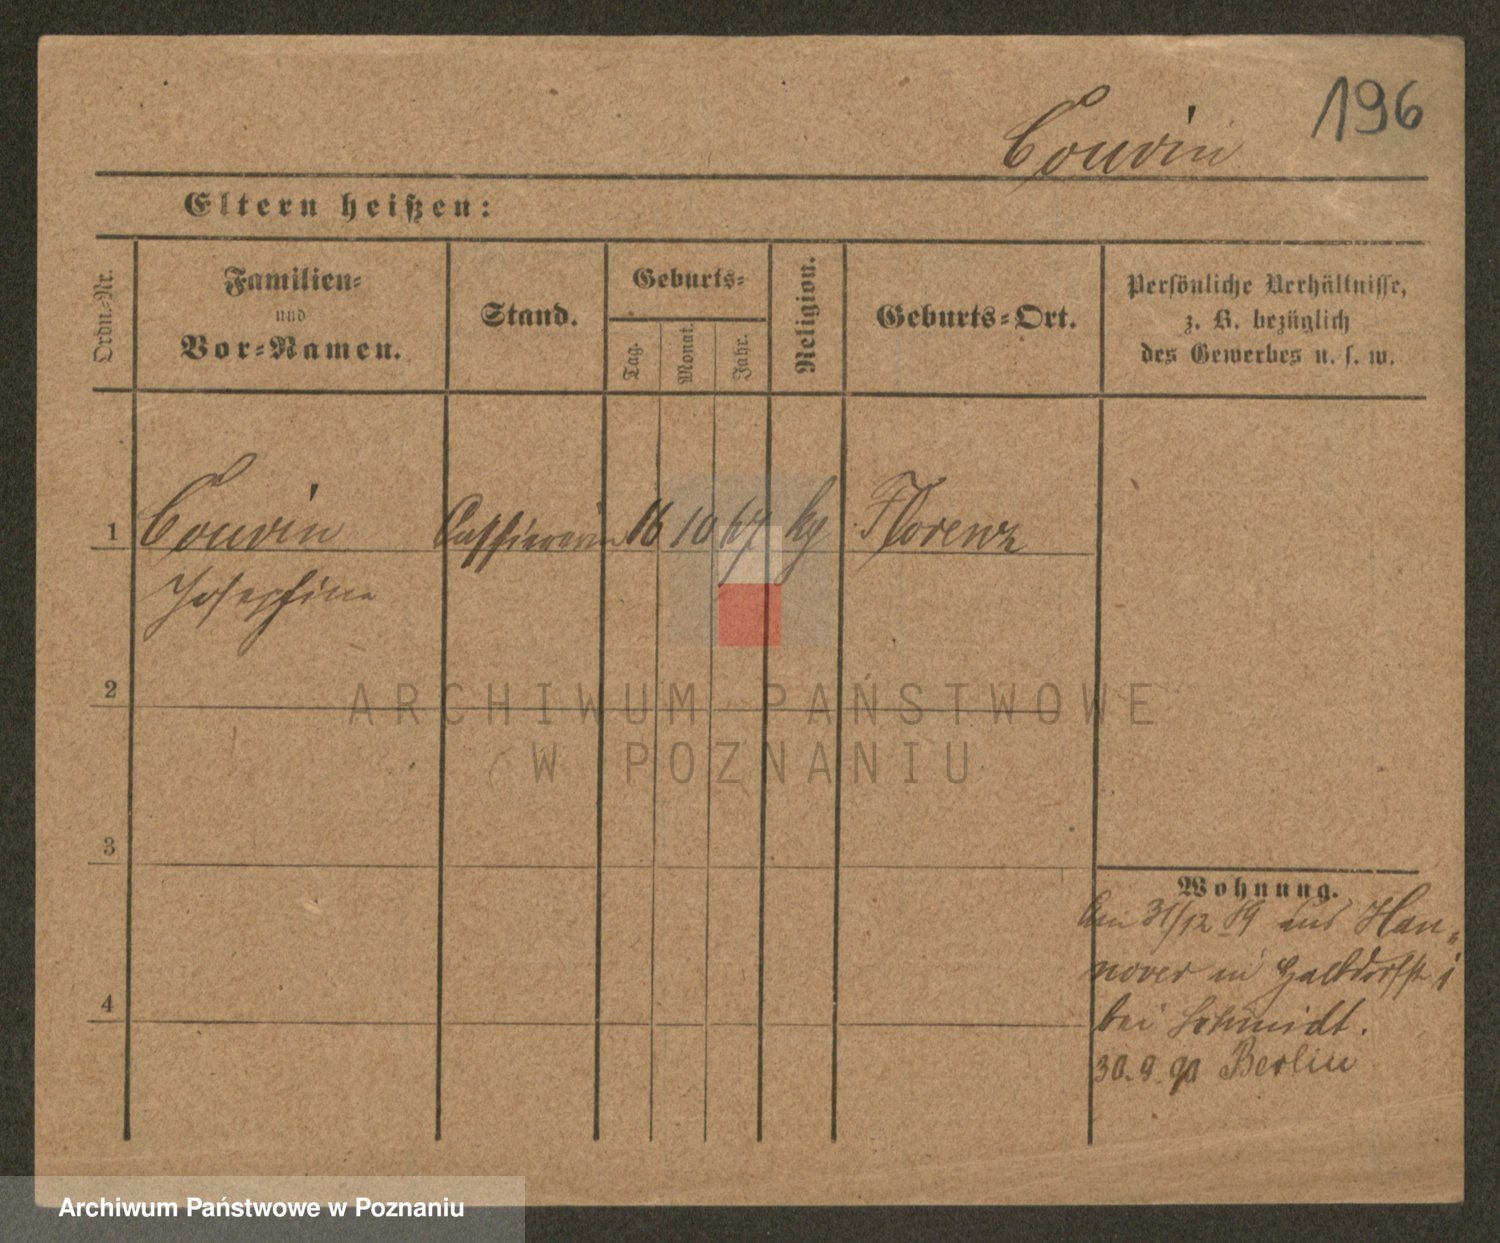 196
Couvin
Eltern heißen:
Ordn.-Nr.
Familien-
und
Vor-Namen.
Stand.
Geburts-
Tag.
Monat.
Jahr.
Religion.
Geburts-Ort.
Persönliche Verhältnisse,
z. B. bezüglich
des Gewerbes u. s. w.
1 Couvin Cassiererin 16 10 67 kg Florenz
Josephine
2
3
4
Wohnung.
31/12 89 aus Han-
nover in Halbdorfstr 1
bei Schmidt.
30.9.90 Berlin
ARCHIWUM PAŃSTWOWE
W POZNANIU
Archiwum Państwowe w Poznaniu